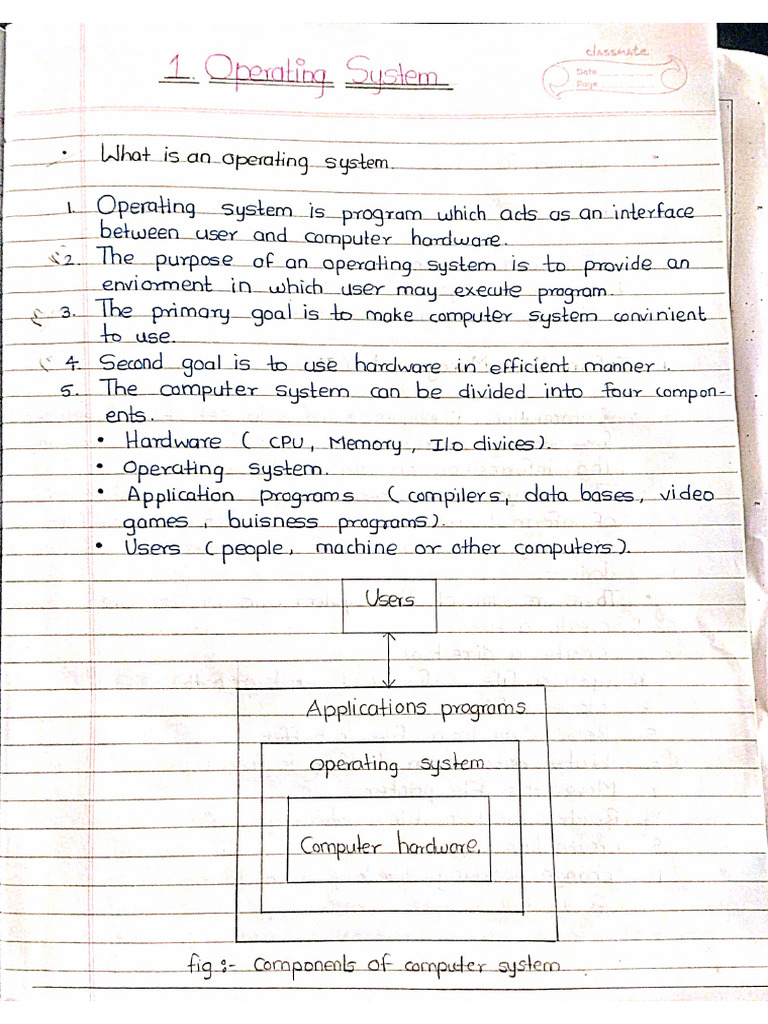 classmate
Date
Page
1. Operating System
• What is an operating system.
1. Operating system is program which acts as an interface
between user and computer hardware.
2. The purpose of an operating system is to provide an
enviorment in which user may execute program.
3. The primary goal is to make computer system convinient
to use.
4. Second goal is to use hardware in efficient manner.
5. The computer system can be divided into four compon-
ents.
• Hardware ( CPU, Memory, I/O divices).
• Operating system.
• Application programs (compilers, data bases, video
games, buisness programs).
• Users (people, machine or other computers).
Users
Applications programs
Operating system
Computer hardware.
fig :- Components of computer system